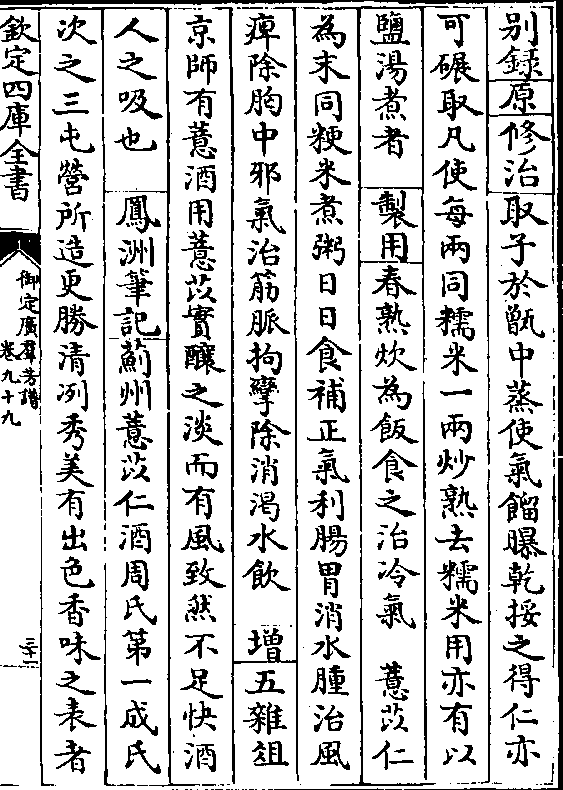 别錄原修治取子於甑中蒸使氣餾曝乾挼之得仁亦
可碾取凡使每兩同糯米一兩炒熟去糯米用亦有以
鹽湯煮者　製用春熟炊為飯食之治冷氣　薏苡仁
為末同粳米煮粥日日食補正氣利腸胃消水腫治風
痺除胸中邪氣治筋脈拘攣除消渴水飲　增五雜俎
京師有薏酒用薏苡實釀之淡而有風致然不足快酒
人之吸也　鳳洲筆記薊州薏苡仁酒周氏第一成氏
次之三屯營所造更勝清冽秀美有出色香味之表者
欽定四庫全書
御定廣羣芳譜
卷九十九
三十二